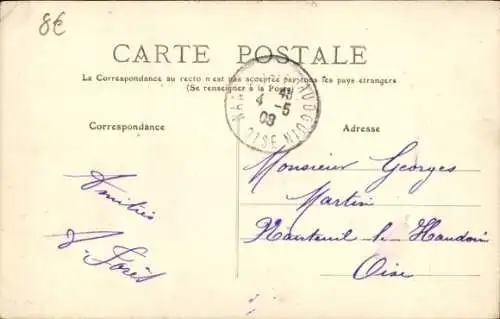 8€
CARTE POSTALE
La Correspondance au recto n'est pas acceptée par tous les pays étrangers
(Se renseigner à la Poste)
OISE
4 -5
08
Correspondance
Adresse
Monsieur Georges
Martin
Nanteuil le Haudoin
Oise
Amitiés